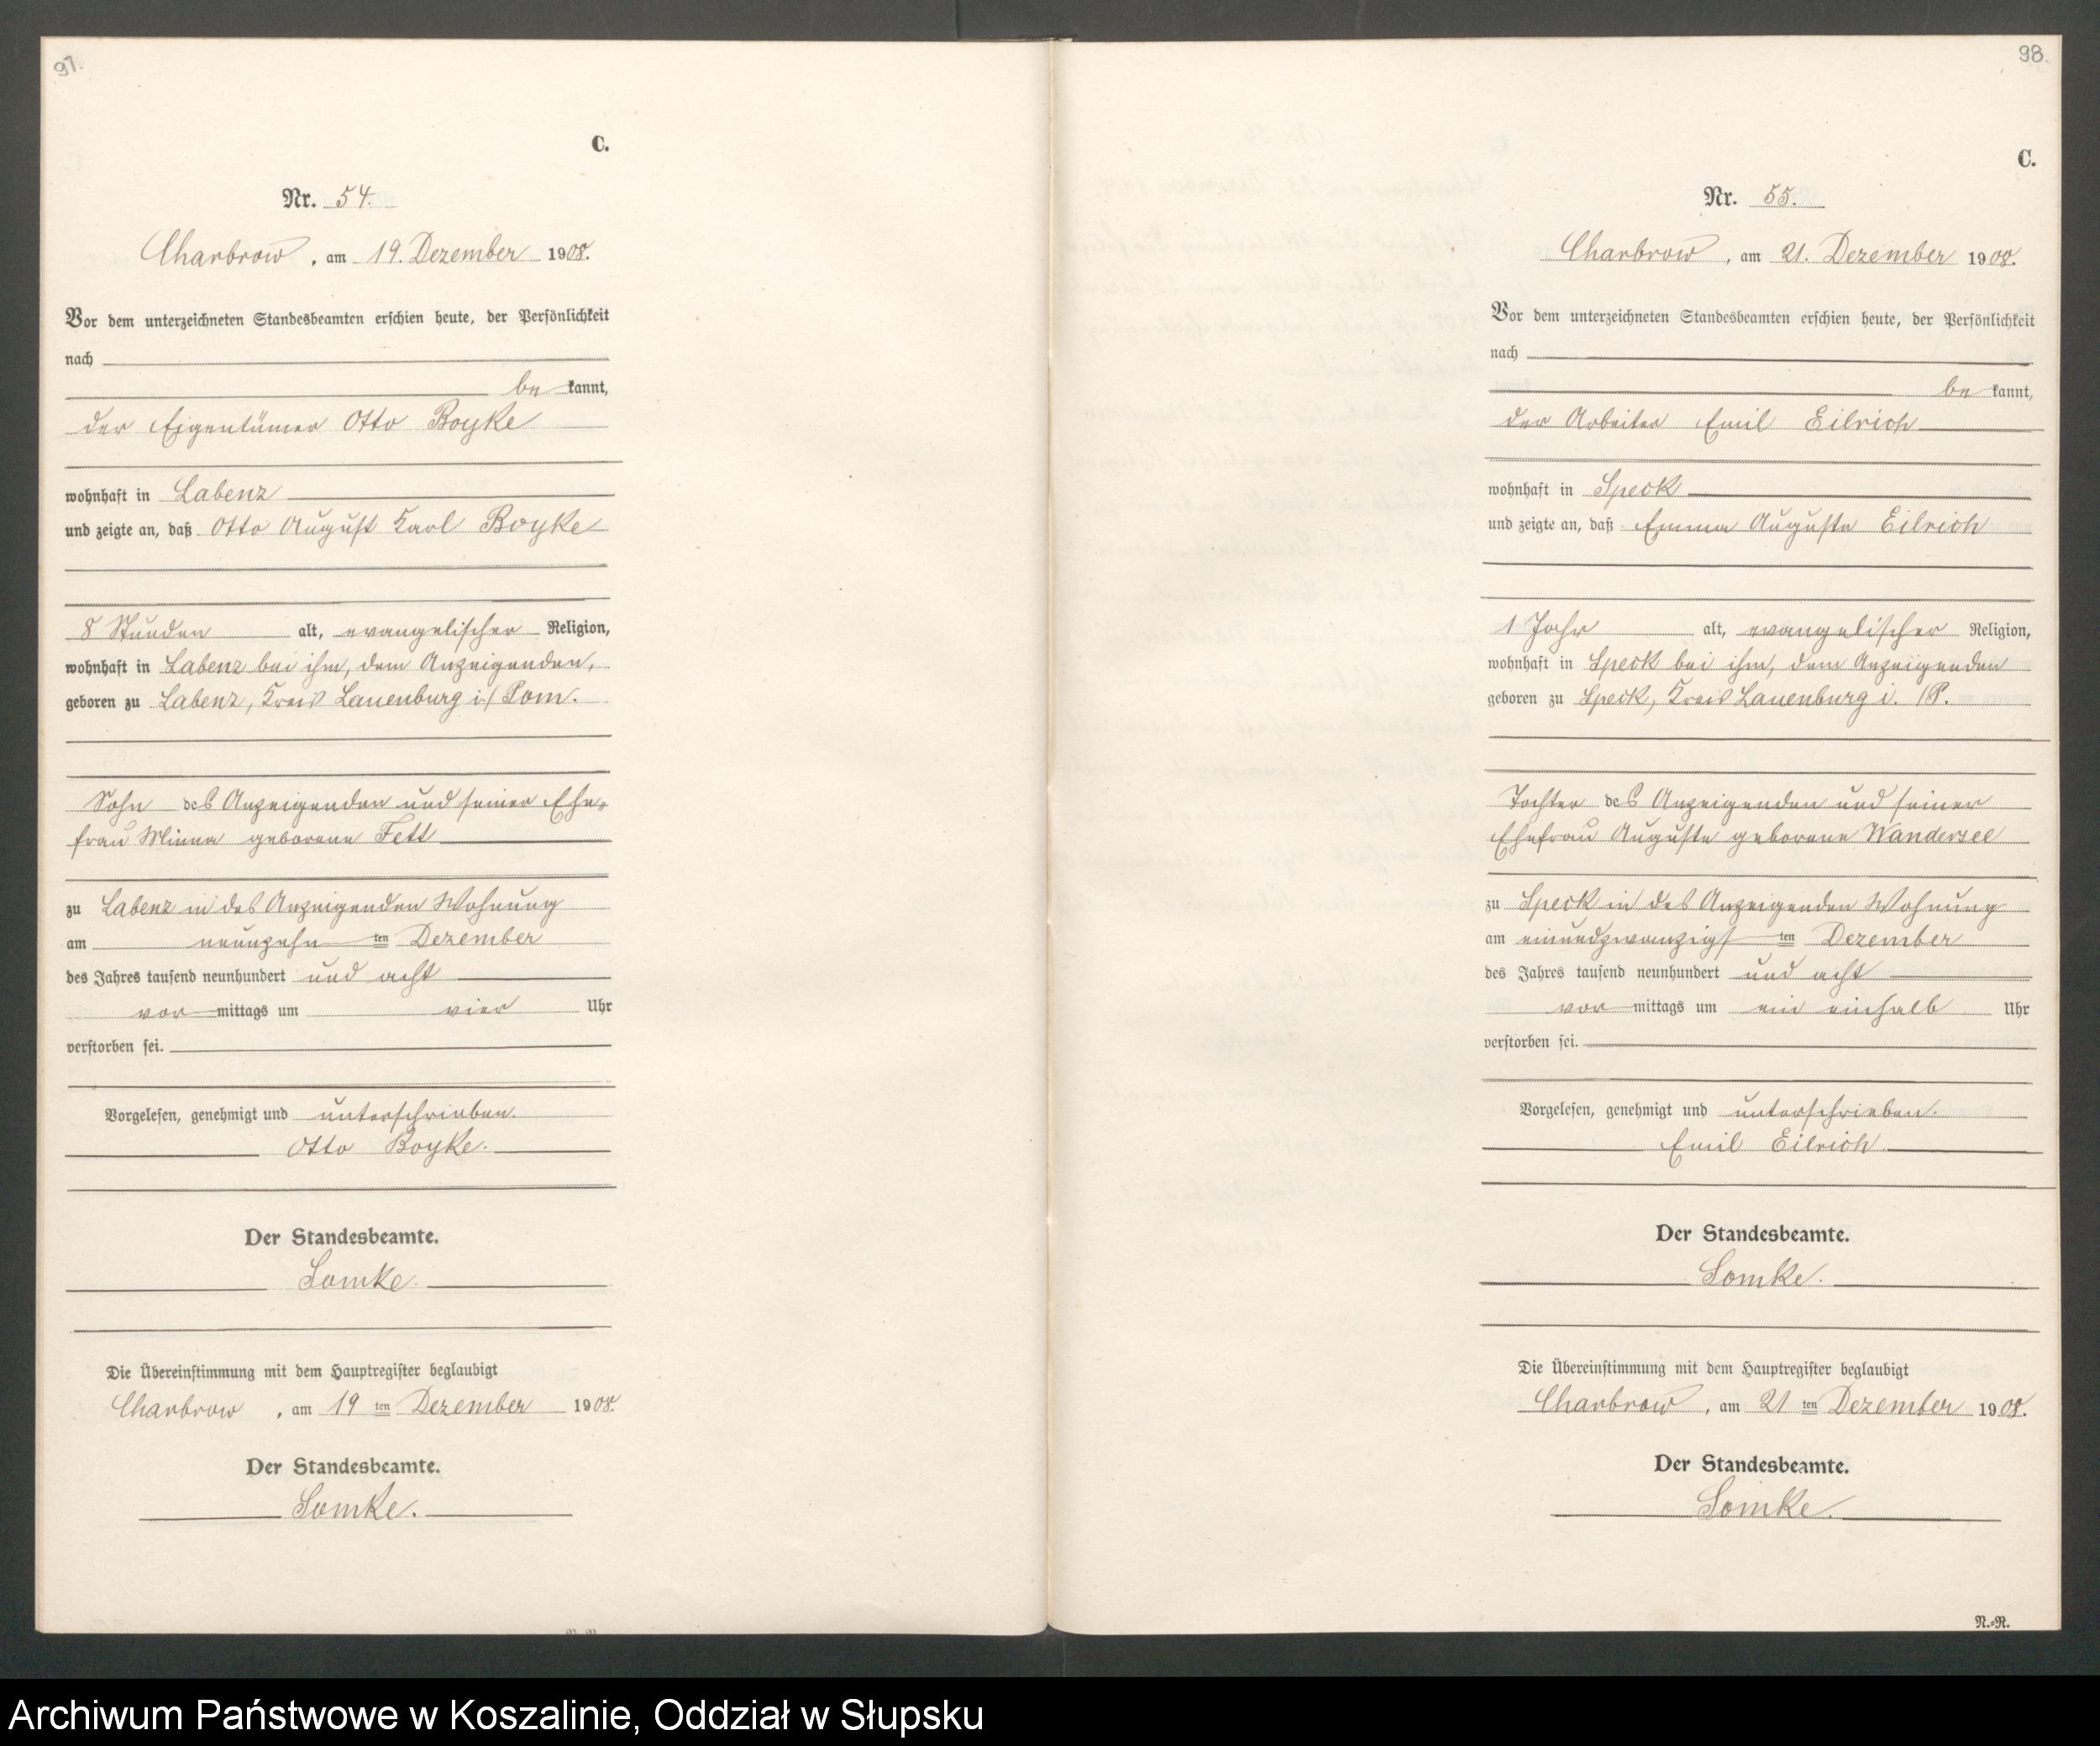 97.
C.
Nr. 54.
Charbrow, am 19. Dezember 1908.
Vor dem unterzeichneten Standesbeamten erschien heute, der Persönlichkeit
nach
be kannt,
der Eigentümer Otto Boyke
wohnhaft in Labenz
und zeigte an, daß Otto August Karl Boyke
8 Stunden alt, evangelischer Religion,
wohnhaft in Labenz bei ihm, dem Anzeigenden,
geboren zu Labenz, Kreis Lauenburg i/Pom.
Sohn des Anzeigenden und seiner Ehe-
frau Minna geborene Fett
zu Labenz in des Anzeigenden Wohnung
am neunzehn ten Dezember
des Jahres tausend neunhundert und acht
vor mittags um vier Uhr
verstorben sei.
Vorgelesen, genehmigt und unterschrieben.
Otto Boyke.
Der Standesbeamte.
Lemke.
Die Übereinstimmung mit dem Hauptregister beglaubigt
Charbrow, am 19 ten Dezember 1908.
Der Standesbeamte.
Lemke.
98.
C.
Nr. 55.
Charbrow, am 21. Dezember 1908.
Vor dem unterzeichneten Standesbeamten erschien heute, der Persönlichkeit
nach
be kannt,
der Arbeiter Emil Eilrich
wohnhaft in Speck
und zeigte an, daß Emma Auguste Eilrich
1 Jahr alt, evangelischer Religion,
wohnhaft in Speck bei ihm, dem Anzeigenden
geboren zu Speck, Kreis Lauenburg i. /P.
Tochter des Anzeigenden und seiner
Ehefrau Auguste geborene Wandersee
zu Speck in des Anzeigenden Wohnung
am einundzwanzigs ten Dezember
des Jahres tausend neunhundert und acht
vor mittags um ein einhalb Uhr
verstorben sei.
Vorgelesen, genehmigt und unterschrieben.
Emil Eilrich
Der Standesbeamte.
Lemke.
Die Übereinstimmung mit dem Hauptregister beglaubigt
Charbrow, am 21 ten Dezember 1908.
Der Standesbeamte.
Lemke.
N.-R.
Archiwum Państwowe w Koszalinie, Oddział w Słupsku